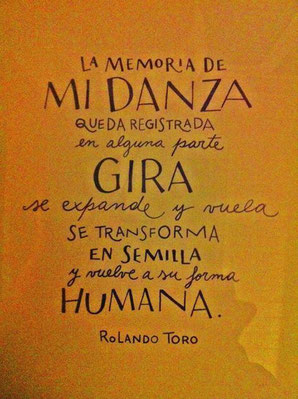 LA MEMORIA DE
MI DANZA
QUEDA REGISTRADA
en alguna parte
GIRA
se expande y vuela
SE TRANSFORMA
EN SEMILLA
y vuelve a su forma
HUMANA.
ROLANDO TORO